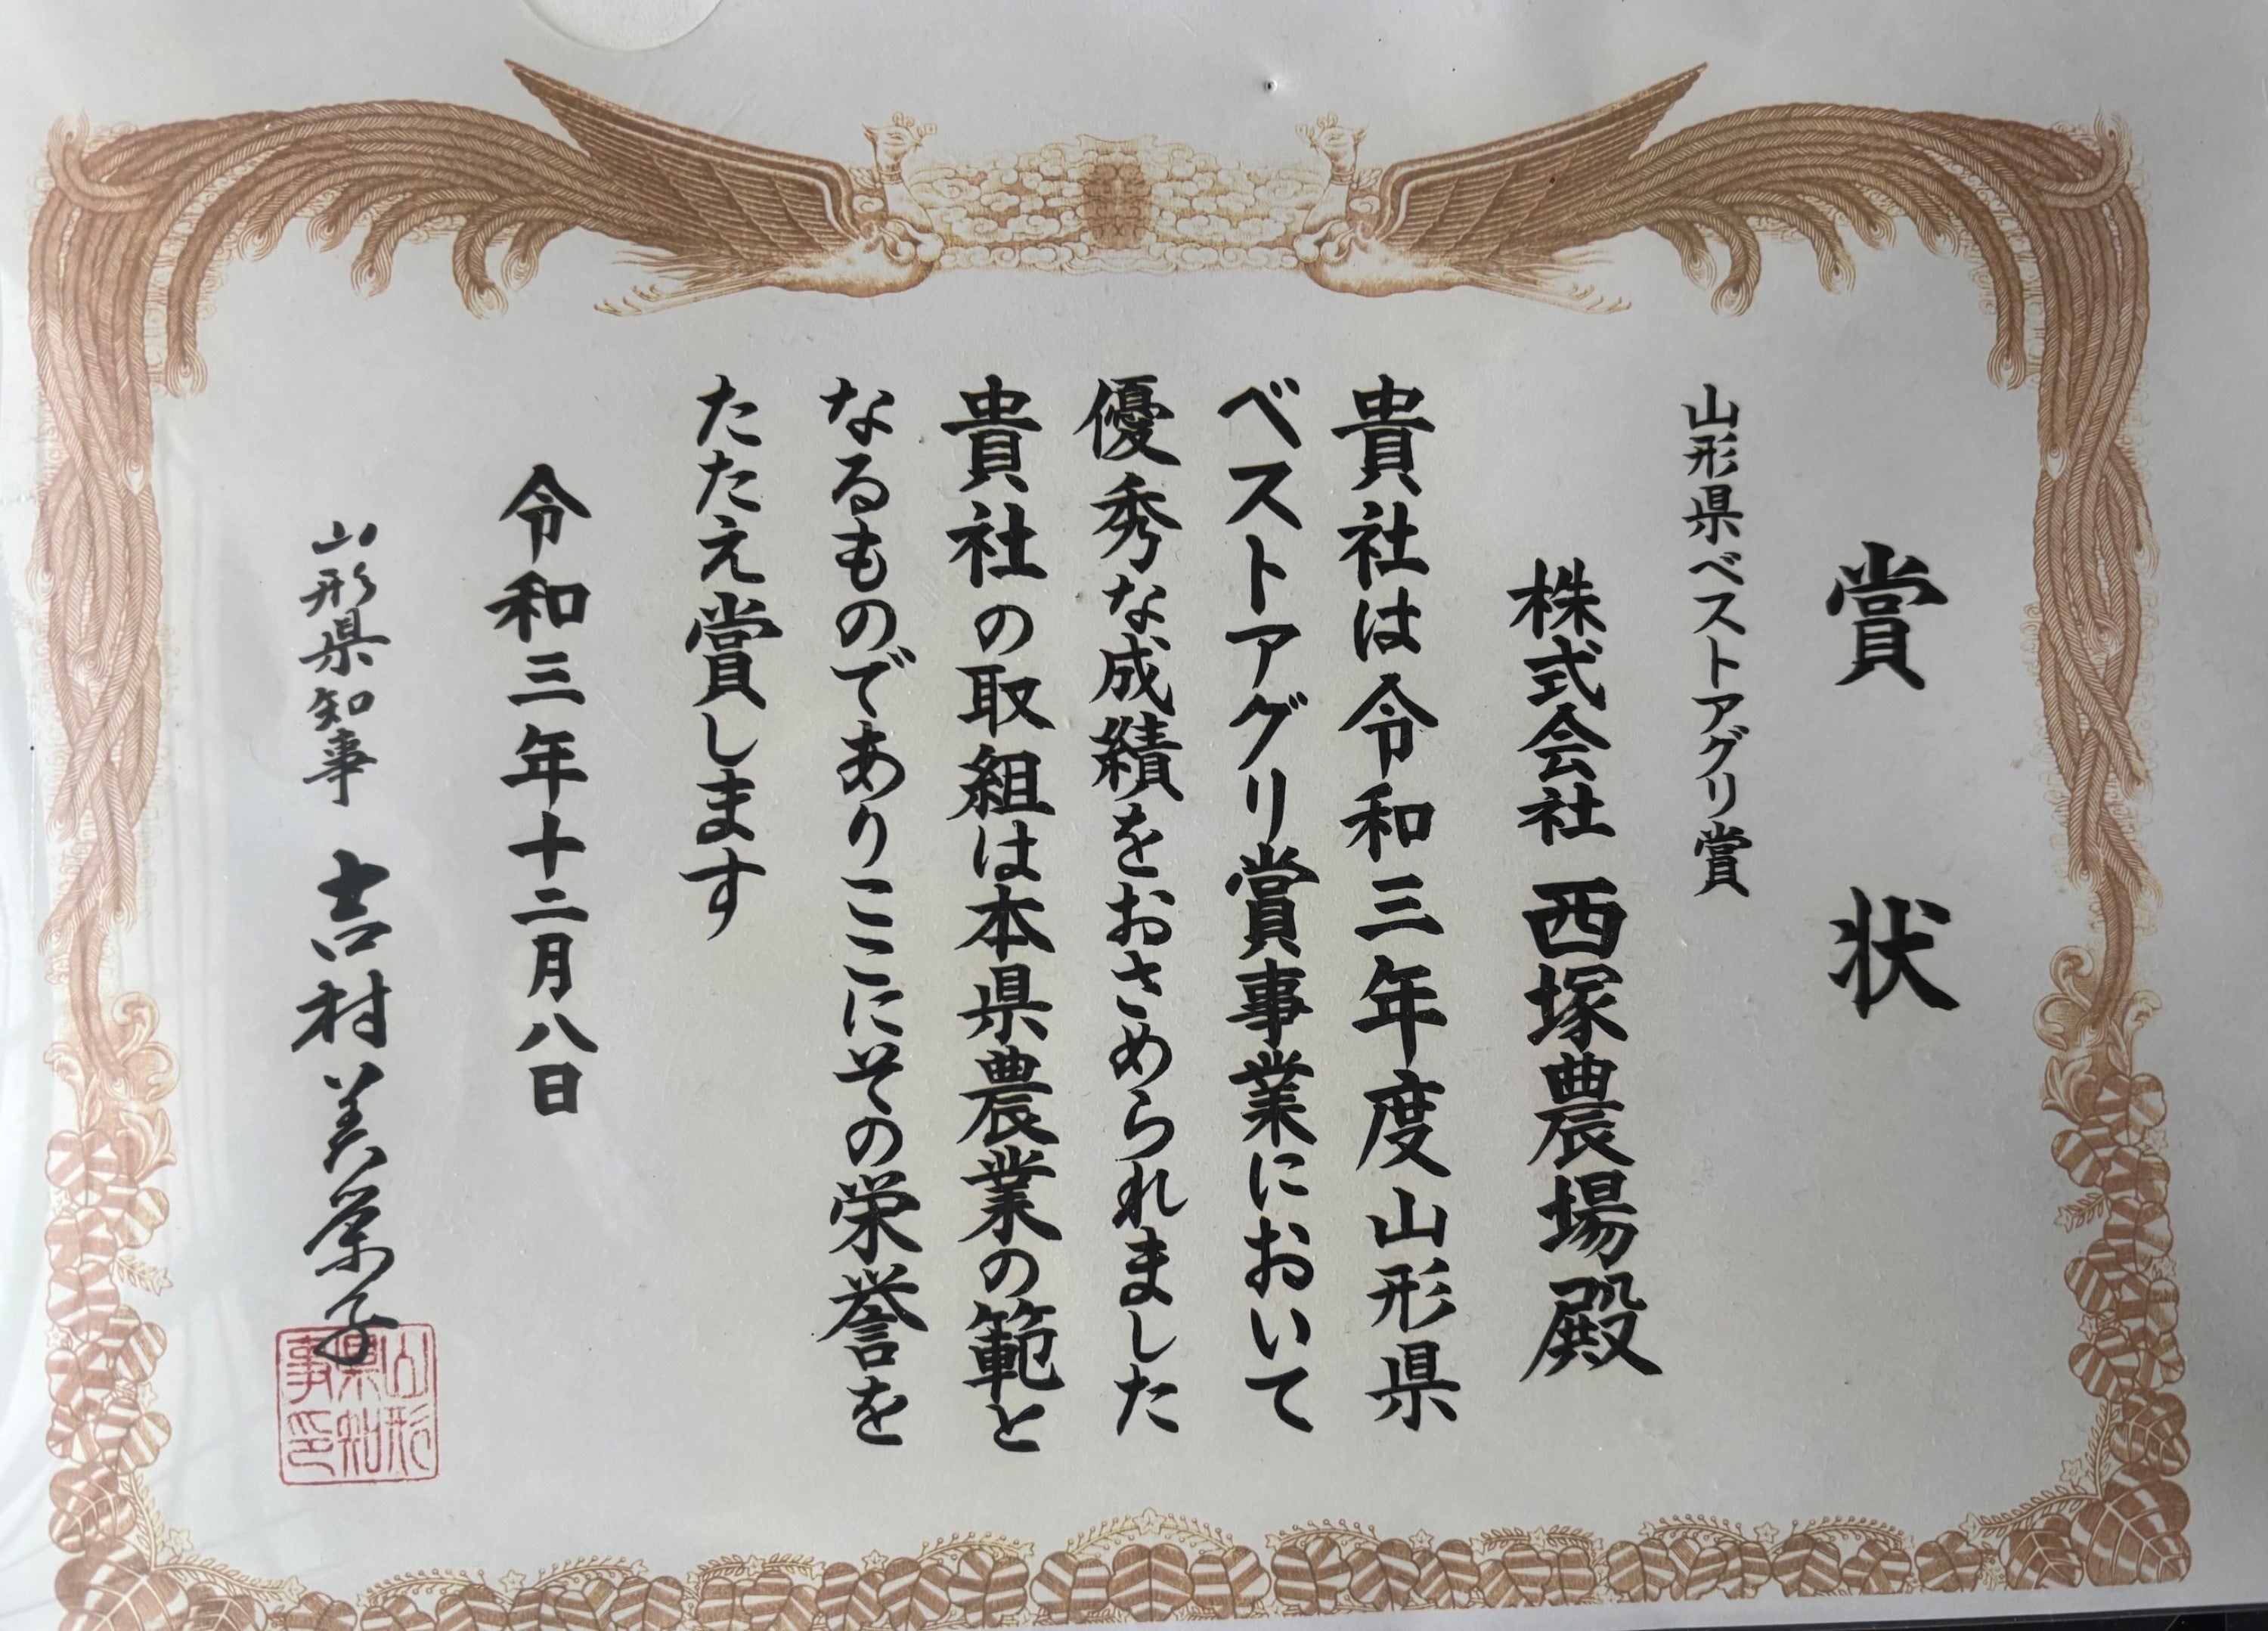 賞状
山形県ベストアグリ賞
株式会社 西塚農場殿
貴社は令和三年度山形県
ベストアグリ賞事業において
優秀な成績をおさめられました
貴社の取組は本県農業の範と
なるものでありここにその栄誉を
たたえ賞します
令和三年十二月八日
山形県知事 吉村美栄子
山形
県知
事印